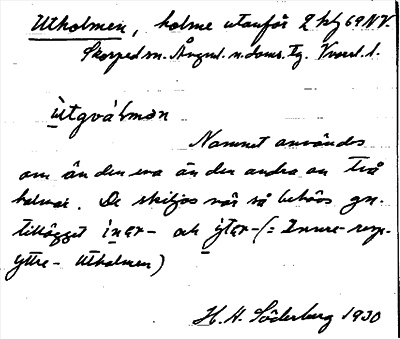 Utholmen, holme utanför 2 kbg 69 N.V.
Skorped sn. Ångml. n. doms. tg. Vnorrl. l.
ùtgválmən
Namnet användes
om än den ena än den andra av två
holmar. De skiljas när så behövs gm.
tillägget ìnər- och ỳtər- (= Innre- resp.
yttre- Utholmen)
H. H. Söderberg 1930